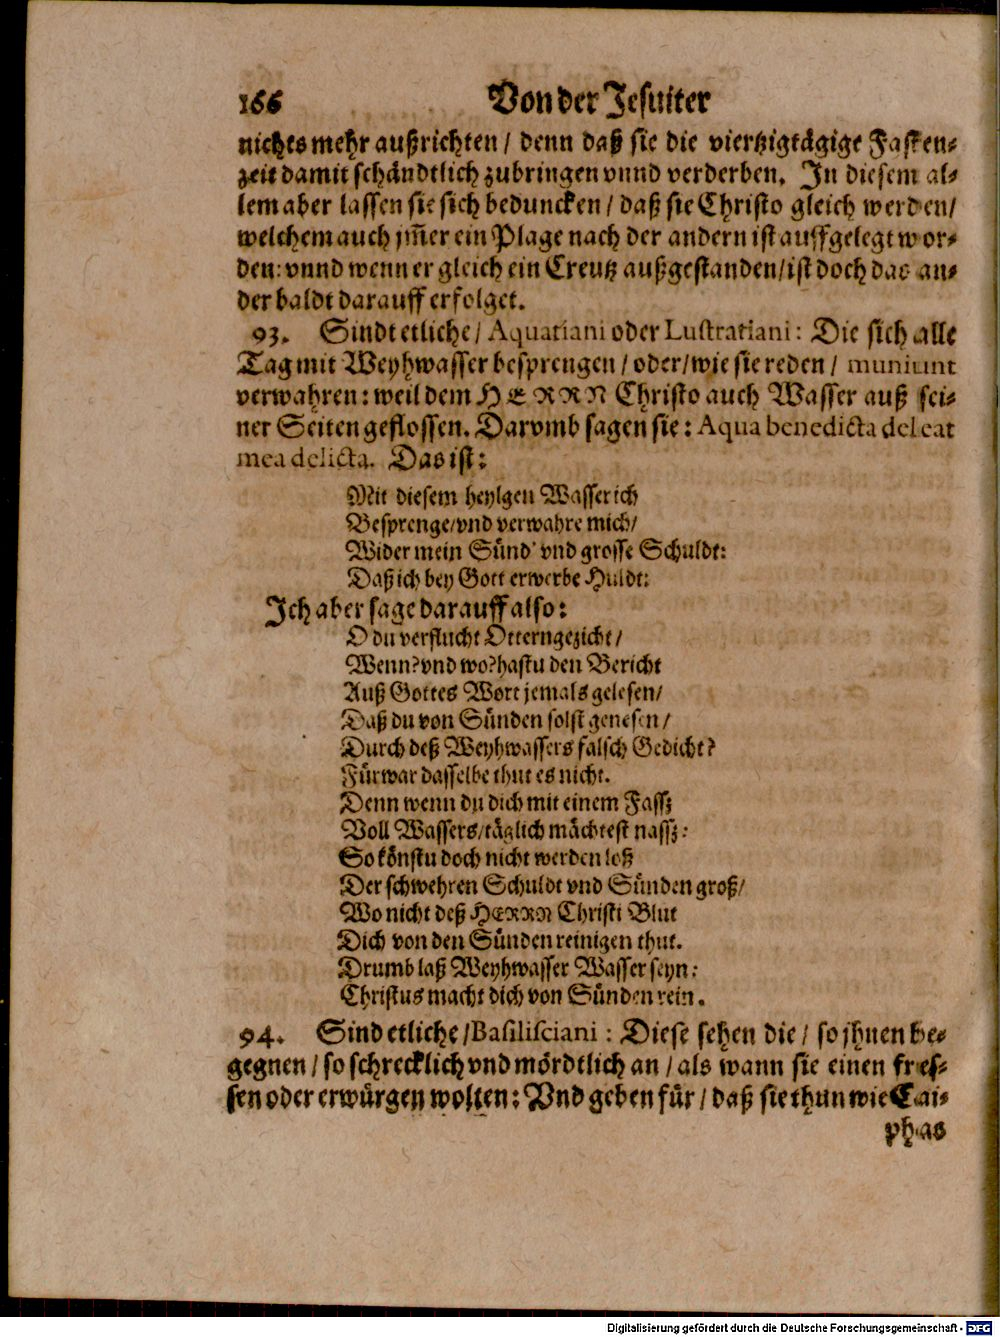 166 Von der Jesuiter
nichts mehr außrichten / denn daß sie die viertzigtägige Fasten-
zeit damit schändtlich zubringen vnnd verderben. In diesem al-
lem aber lassen sie sich beduncken / daß sie Christo gleich werden/
welchem auch jm̄er ein Plage nach der andern ist auffgelegt wor-
den: vnnd wenn er gleich ein Creutz außgestanden/ ist doch das an-
der baldt darauff erfolget.
93. Sindt etliche / Aquatiani oder Lustratiani : Die sich alle
Tag mit Weyhwasser besprengen / oder / wie sie reden / muniunt
verwahren: weil dem HERRN Christo auch Wasser auß sei-
ner Seiten geflossen. Darvmb sagen sie: Aqua benedicta deleat
mea delicta. Das ist:
Mit diesem heylgen Wasser ich
Besprenge/ vnd verwahre mich/
Wider mein Sünd' vnd grosse Schuldt:
Daß ich bey Gott erwerbe Huldt:
Ich aber sage darauff also:
O du verflucht Otterngezicht /
Wenn? vnd wo? hastu den Bericht
Auß Gottes Wort jemals gelesen/
Daß du von Sünden solst genesen /
Durch deß Weyhwassers falsch Gedicht?
Fürwar dasselbe thut es nicht.
Denn wenn du dich mit einem Fassz
Voll Wassers/ täglich mächtest nassz:
So könstu doch nicht werden loß
Der schwehren Schuldt vnd Sünden groß/
Wo nicht deß HERRN Christi Blut
Dich von den Sünden reinigen thut.
Drumb laß Weyhwasser Wasser seyn:
Christus macht dich von Sünden rein.
94. Sind etliche / Basilisciani : Diese sehen die / so jhnen be-
gegnen / so schrecklich vnd mördtlich an / als wann sie einen fres-
sen oder erwürgen wolten: Vnd geben für / daß sie thun wie Cai-
phas
Digitalisierung gefördert durch die Deutsche Forschungsgemeinschaft - DFG